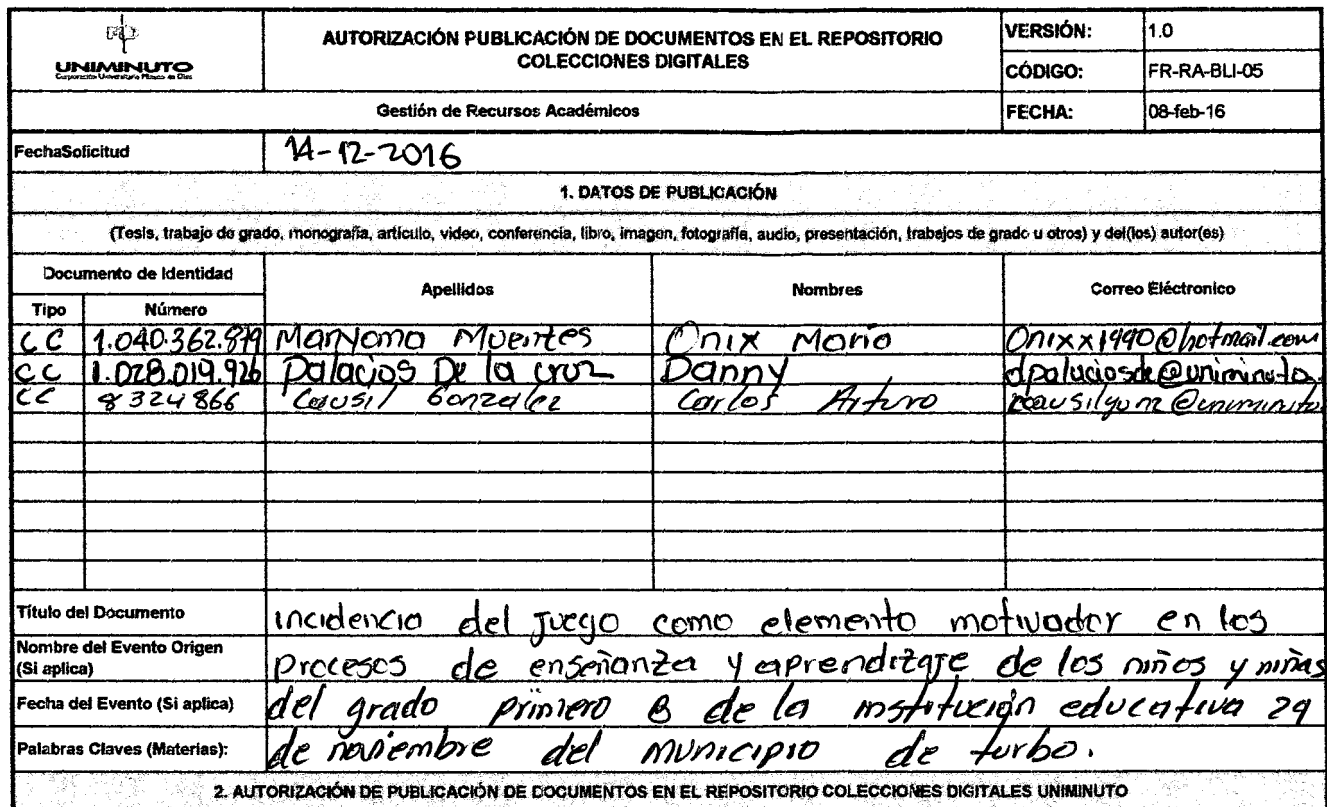 UNIMINUTO
Corporación Universitaria Minuto de Dios
AUTORIZACIÓN PUBLICACIÓN DE DOCUMENTOS EN EL REPOSITORIO
COLECCIONES DIGITALES
VERSIÓN: 1.0
CÓDIGO: FR-RA-BLI-05
Gestión de Recursos Académicos
FECHA: 08-feb-16
FechaSolicitud 14-12-2016
1. DATOS DE PUBLICACIÓN
(Tesis, trabajo de grado, monografía, artículo, video, conferencia, libro, imagen, fotografía, audio, presentación, trabajos de grado u otros) y del(los) autor(es)
Documento de Identidad Apellidos Nombres Correo Eléctronico
Tipo Número
CC 1.040.362.879 Manyoma Muentes Onix Maria Onixx1990@hotmail.com
CC 1.028.019.926 Palacios De la cruz Danny dpalaciosde@uniminuto.
CC 8324866 Causil Gonzalez Carlos Arturo
Título del Documento incidencia del juego como elemento motivador en los
Nombre del Evento Origen
(Si aplica) procesos de enseñanza y aprendizaje de los niños y niñas
Fecha del Evento (Si aplica) del grado primero B de la institución educativa 29
Palabras Claves (Materias): de noviembre del municipio de turbo.
2. AUTORIZACIÓN DE PUBLICACIÓN DE DOCUMENTOS EN EL REPOSITORIO COLECCIONES DIGITALES UNIMINUTO